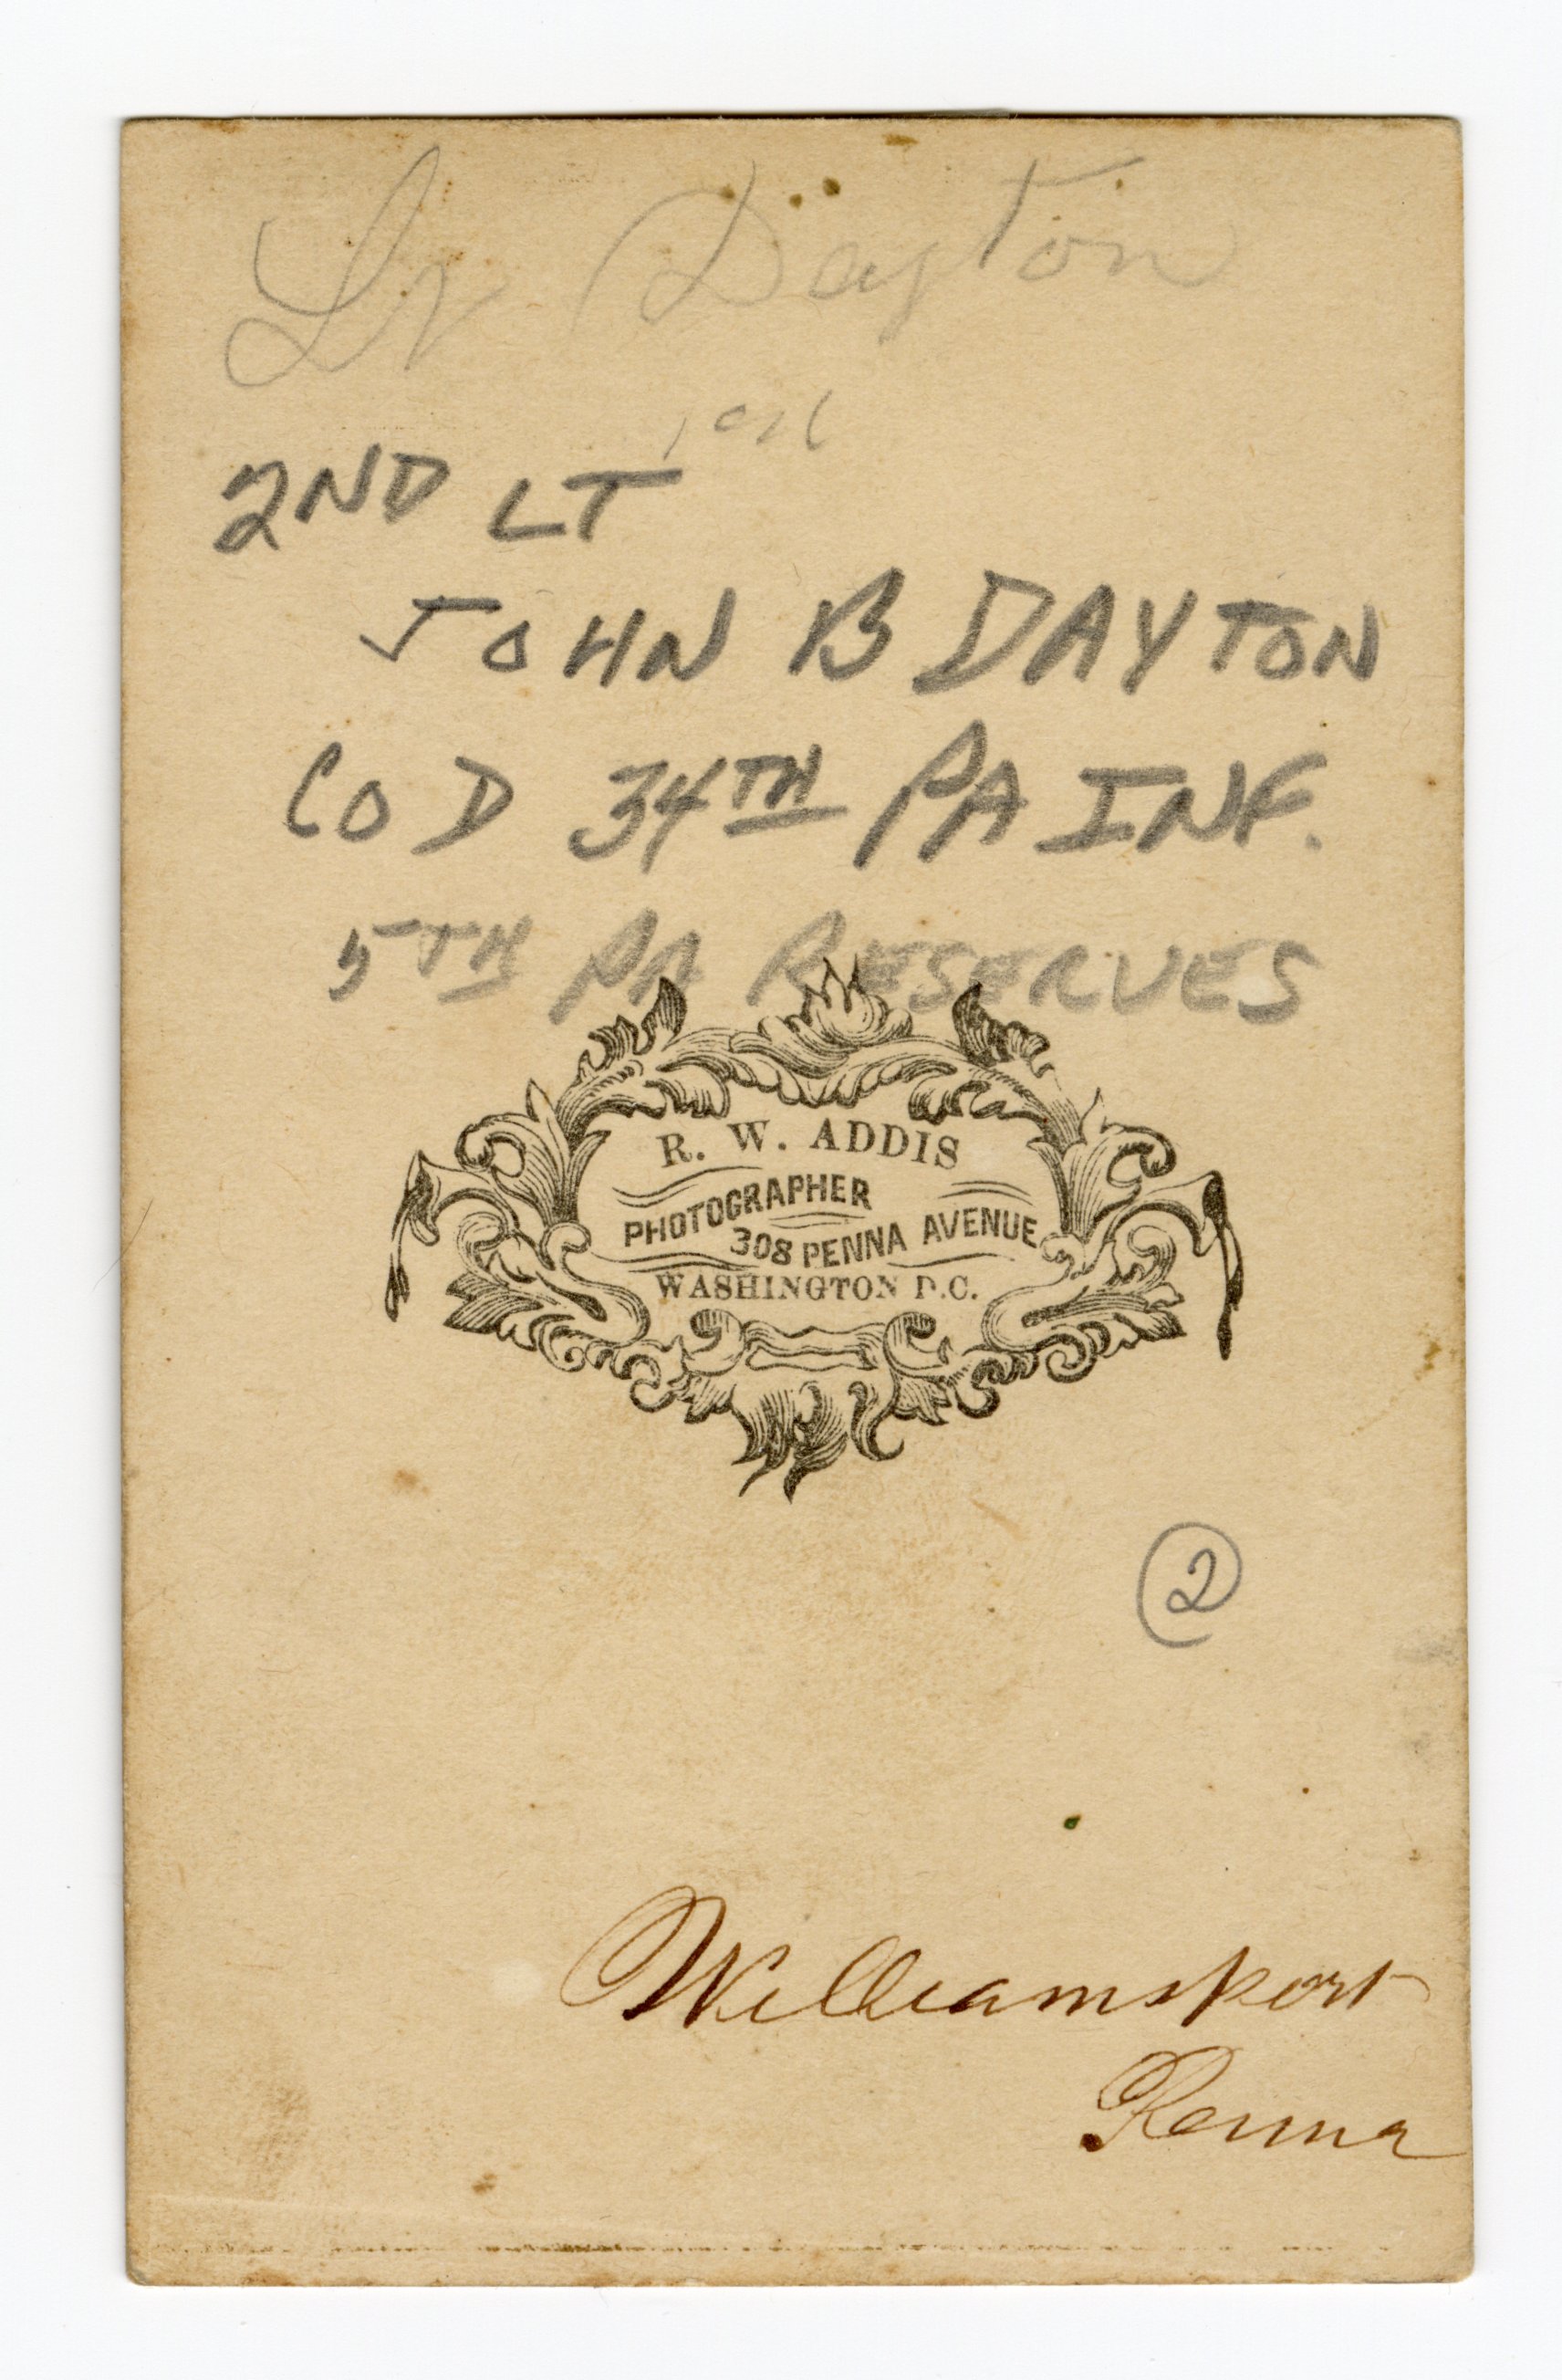 Lt Dayton
2ND LT
JOHN B DAYTON
CO D 34TH PA INF.
5TH PA RESERVES
R. W. ADDIS
PHOTOGRAPHER
308 PENNA AVENUE
WASHINGTON D.C.
2
Williamsport
Penna